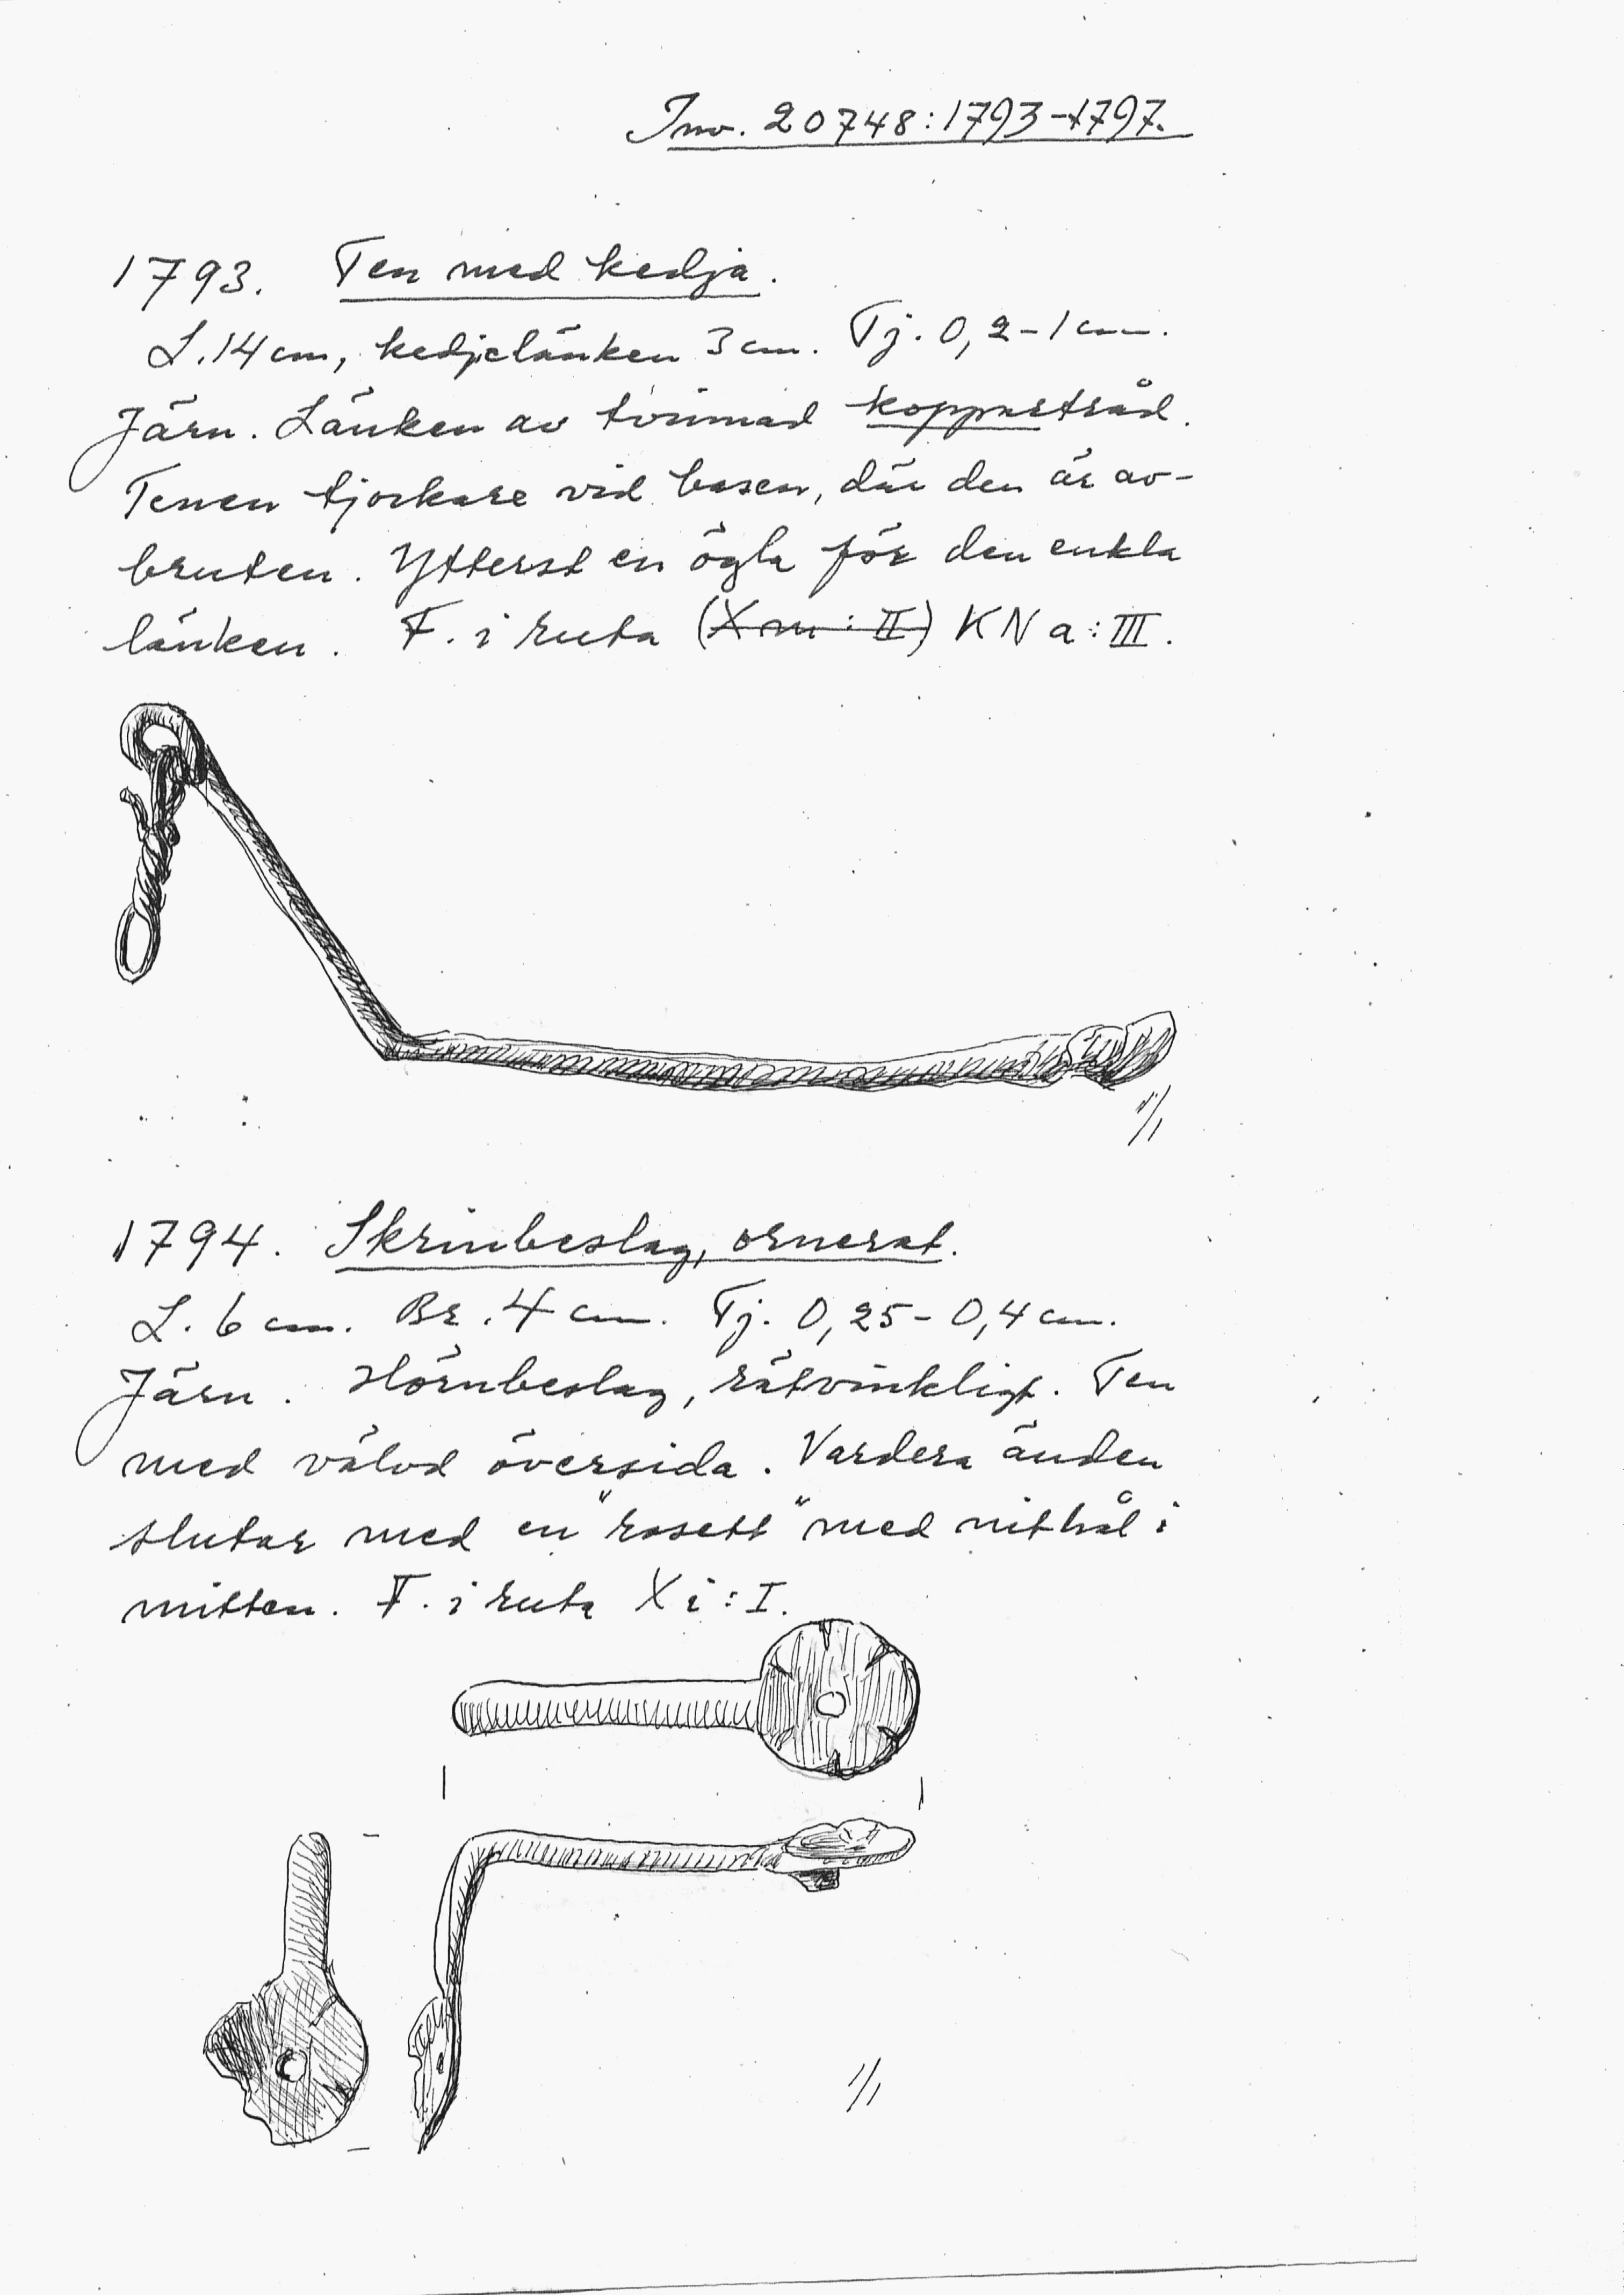 Inv. 20748:1793-1797.
1793. Ten med kedja.
L. 14 cm, kedjelänken 3 cm. Tj. 0,2-1 cm.
Järn. Länken av tvinnad koppartråd.
Tenen tjockare vid basen, där den är av-
bruten. Ytterst en ögla för den enkla
länken. F. i ruta (Xm:II) KNa:III.
1/1
1794. Skrinbeslag, ornerat.
L. 6 cm. Br. 4 cm. Tj. 0,25-0,4 cm.
Järn. Hörnbeslag, rätvinkligt. Ten
med välvd översida. Vardera änden
slutar med en "rosett" med nithål i
mitten. F. i ruta Xi:I.
1/1